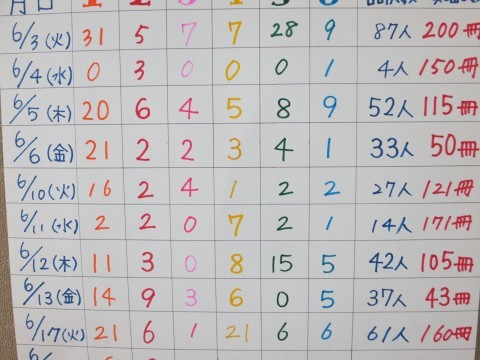 月日 1 2 3 4 5 6
6/3(火) 31 5 7 7 28 9 87人 200冊
6/4(水) 0 3 0 0 0 1 4人 150冊
6/5(木) 20 6 4 5 8 9 52人 115冊
6/6(金) 21 2 2 3 4 1 33人 50冊
6/10(火) 16 2 4 1 2 2 27人 121冊
6/11(水) 2 2 0 7 2 1 14人 171冊
6/12(木) 11 3 0 8 15 5 42人 105冊
6/13(金) 14 9 3 6 0 5 37人 43冊
6/17(火) 21 6 1 21 6 6 61人 160冊